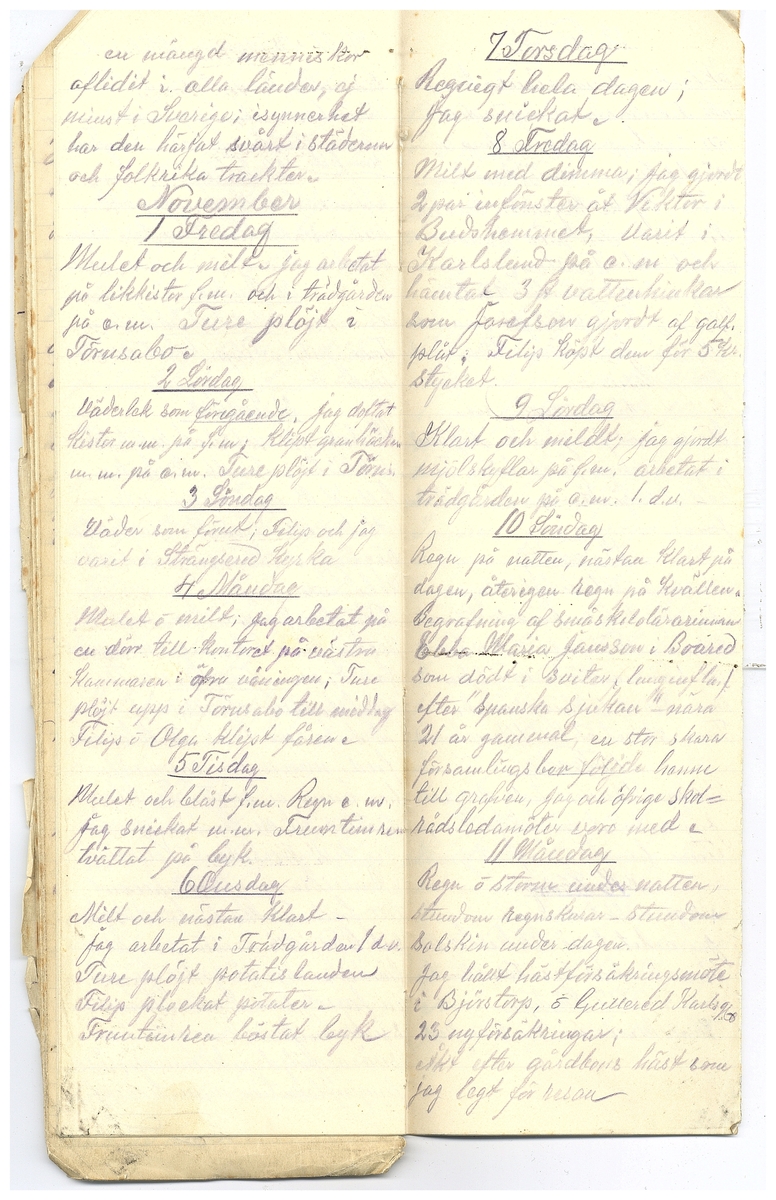 en mängd menniskor
aflidit i alla länder, ej
minst i Sverige; isynnerhet
har den härjat svårt i städerna
och folkrika trackter.
November
1 Fredag
Mulet och milt. jag arbetat
på likkistor f.m. och i trädgården
på e.m. Ture plöjt i
Törnsabo.
2 Lördag
Väderlek som föregående. jag
kistor m.m. på f.m; klipt granhäcken
m.m. på e.m. Ture plöjt i Törns.
3 Söndag
Väder som förut; Filip och jag
varit i Strängsered Kyrka
4 Måndag
Mulet o milt; jag arbetat på
en dörr till kontoret på västra
kammaren i öfra våningen; Ture
plöjt upp i Törnsabo till middag
Filip o Olga klipt fåren.
5 Tisdag
Mulet och blåst f.m. Regn e.m.
jag snickat m.m. Fruntimren
tvättat på byk.
6 Onsdag
Milt och nästan klart –
jag arbetat i Trädgården 1 d.v.
Ture plöjt potatislanden
Filip plockat potater.
Fruntimren böstat byk
7 Torsdag
Regnigt hela dagen;
jag snickat.
8 Fredag
Milt med dimma; jag gjordt
2 par infönster åt Viktor i
Budshemmet, varit i
Karlslund på e.m och
hämtat 3 st vattenhinkar
som Josefson gjordt af galf.
plåt; Filip köpt dem för 5 kr.
stycket.
9 Lördag
Klart och mildt; jag gjordt
mjölskoflar på f.m. arbetat i
trädgården på e.m. 1. d.v.
10 Söndag
Regn på natten, nästan klart på
dagen, återigen regn på kvällen.
Begrafning af småskololärarinnan
Ebba Maria Jansson i Boared
som dödt i sviter (lunginfla.)
efter "Spanska Sjukan" – nära
21 år gammal; en stor skara
församlingsbor följde henne
till grafven, jag och öfrige skol=
rådsledamöter voro med.
11 Måndag
Regn o storm under natten,
stundom regnskurar – stundom
solskin under dagen.
jag hållt hästförsäkringsmöte
i Björstorp, o Gullered
25 nyförsäkringar;
åkt efter gårdbons häst som
jag legt för resan